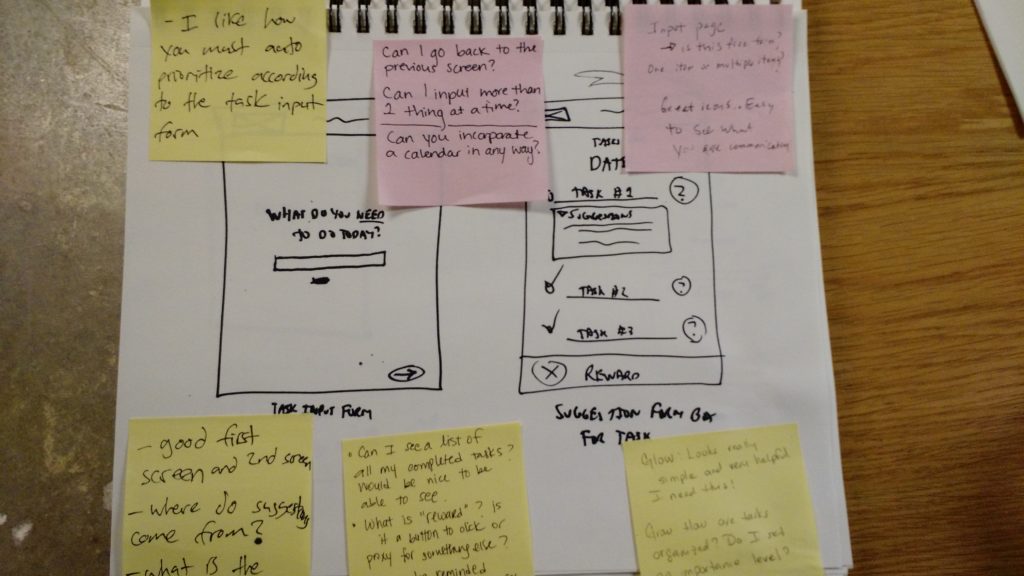 - I like how
you must auto
prioritize according
to the task input
form
Can I go back to the
previous screen?
Can I input more than
1 thing at a time?
Can you incorporate
a calendar in any way?
Input page
→ is this free
One item or multiple items?
Great icons.. Easy
to see what
you are communicating
WHAT DO YOU NEED
TO DO TODAY?
TASK INPUT FORM
TASKS
DATE
TASK #1
?
SUGGESTIONS
TASK #2
?
TASK #3
?
X REWARD
SUGGESTION FORM BOX
FOR TASK
- good first
screen and 2nd screen
- where do suggestions
come from?
- what is the
• Can I see a list of
all my completed tasks?
Would be nice to be
able to see.
• What is "reward"? Is
it a button to click or
proxy for something else?
be reminded
Glow: Looks really
simple and very helpful
I need this!
Grow: How are tasks
organized? Do I set
an importance level?